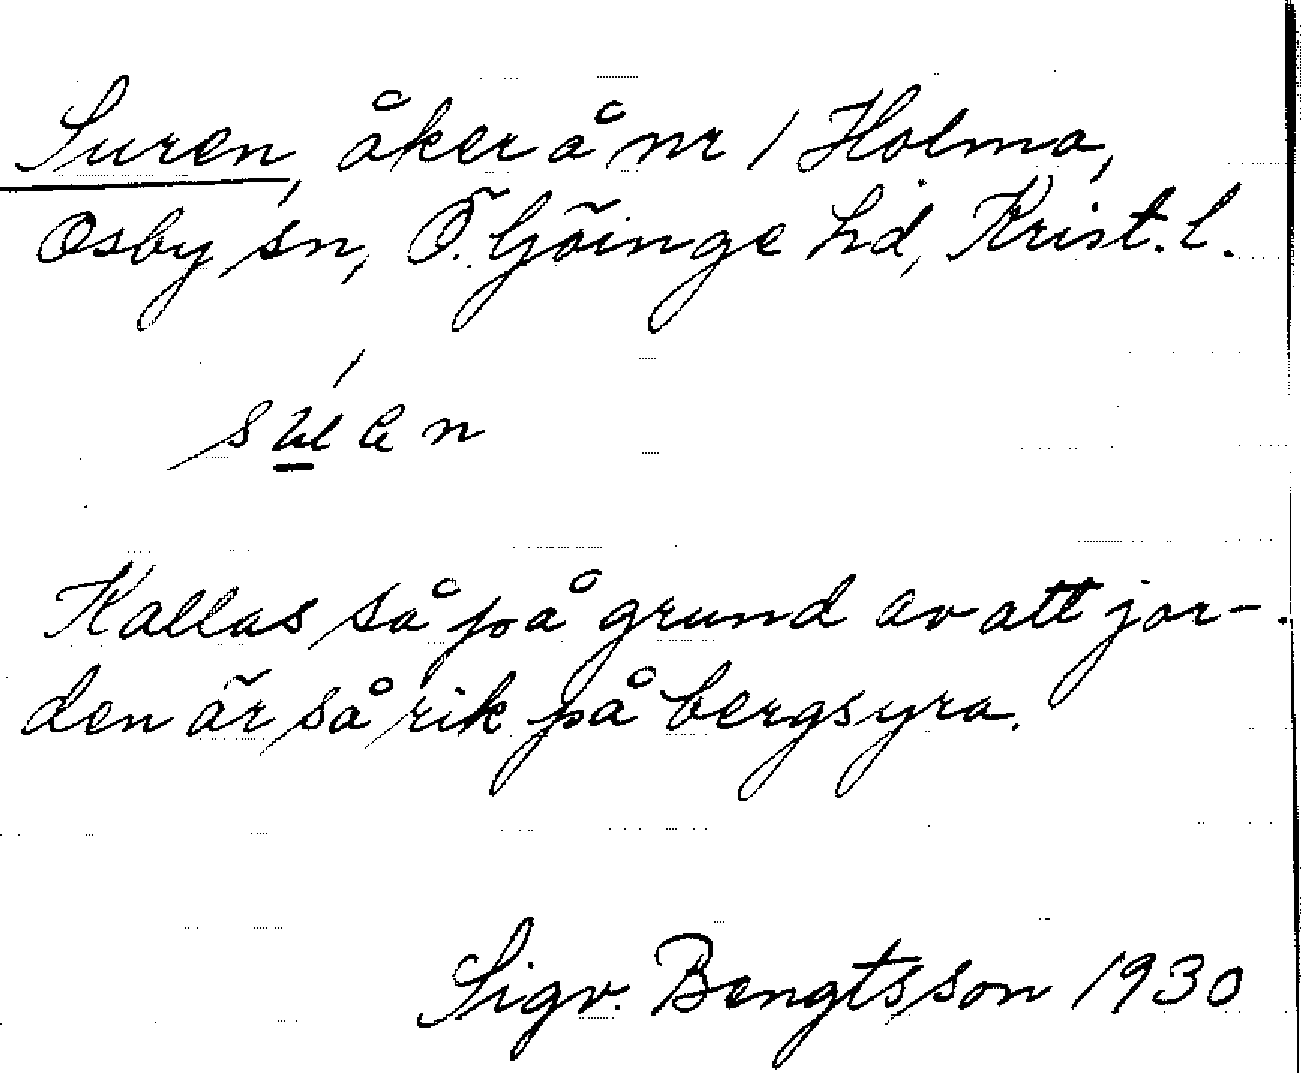 Suren, åker å nr 1 Holma,
Osby sn, Ö. Göinge hd, Krist. l.
Kallas så på grund av att jor-
den är så rik på bergsyra.
Sigv. Bengtsson 1930